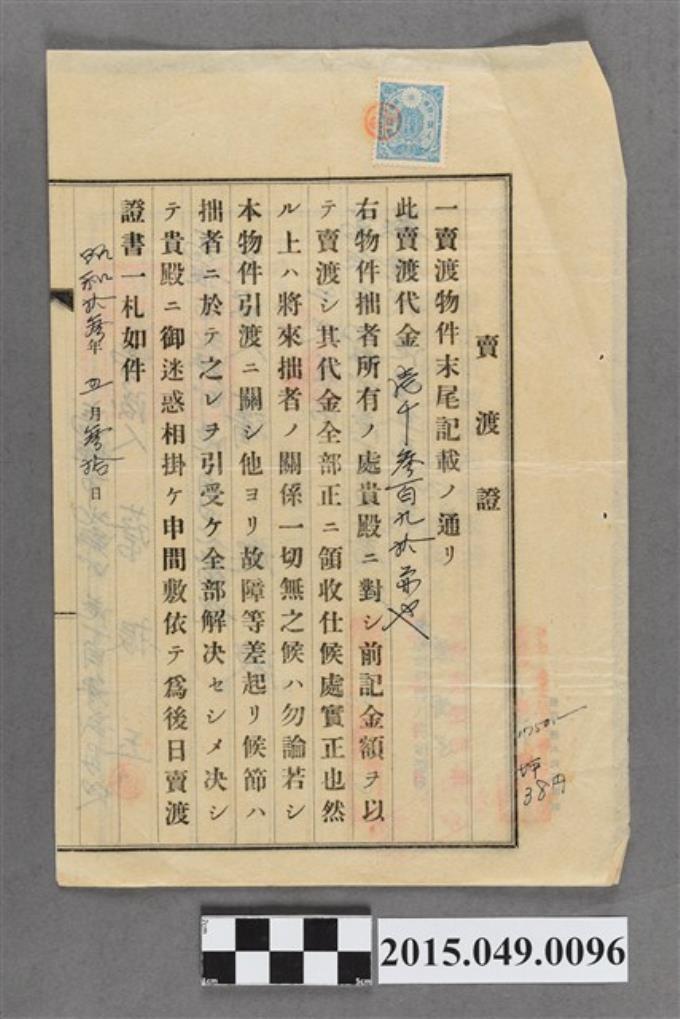 賣渡證
一賣渡物件末尾記載ノ通リ
此賣渡代金壱千参百九拾
右物件拙者所有ノ處貴殿ニ對シ前記金額ヲ以
テ賣渡シ其代金全部正ニ領收仕候處實正也然
ル上ハ將來拙者ノ關係一切無之候ハ勿論若シ
本物件引渡ニ關シ他ヨリ故障等差起リ候節ハ
拙者ニ於テ之レヲ引受ケ全部解决セシメ决シ
テ貴殿ニ御迷惑相掛ケ申間敷依テ爲後日賣渡
證書一札如件
昭和拾参年四月参拾日
坪
38円
2015.049.0096
2cm
0cm
5cm